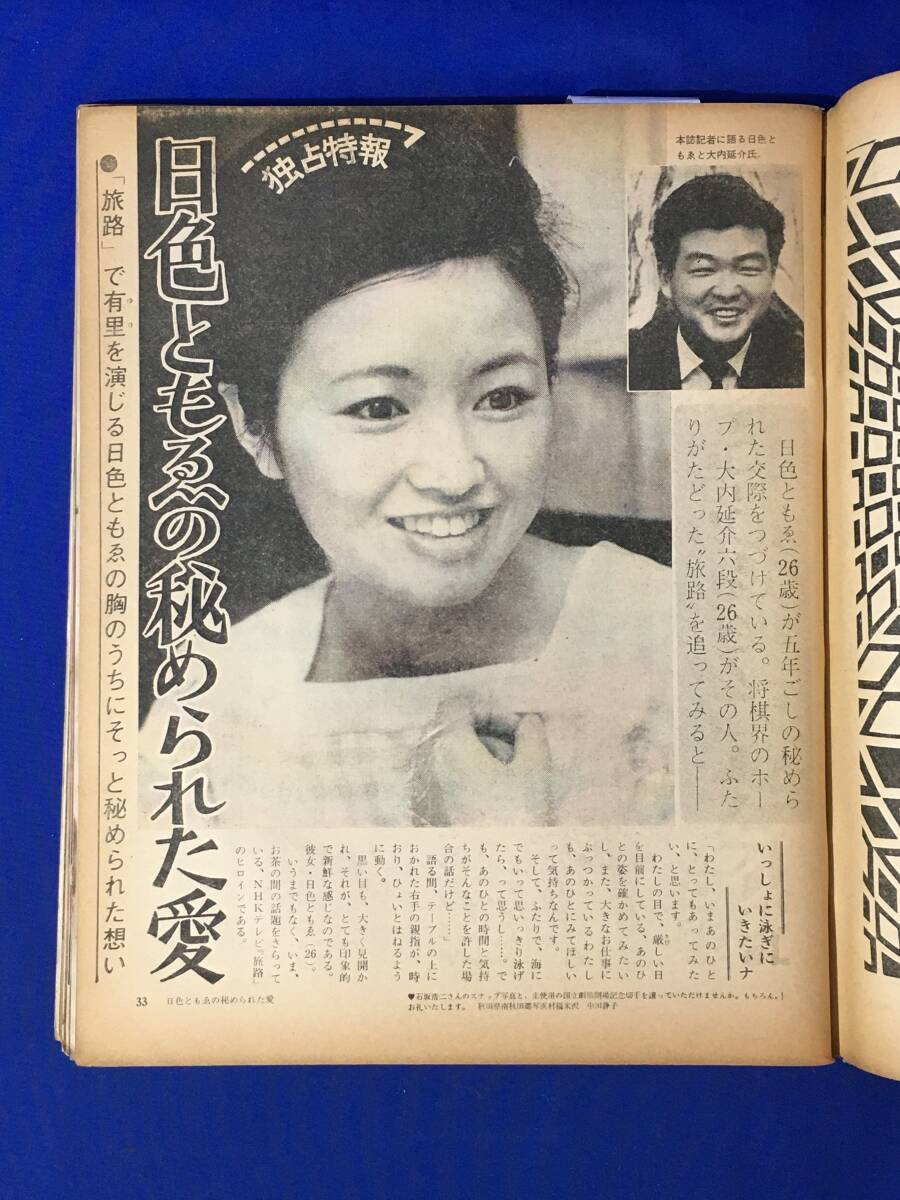 独占特報
日色ともゑの秘められた愛
●「旅路」で有里を演じる日色ともゑの胸のうちにそっと秘められた想い
ゆり
本誌記者に語る日色と
もゑと大内延介氏。
日色ともゑ(26歳)が五年ごしの秘めら
れた交際をつづけている。将棋界のホー
プ・大内延介六段(26歳)がその人。ふた
りがたどった〝旅路〟を追ってみると——
いっしょに泳ぎに
いきたいナ
「わたし、いまあのひと
に、とってもあってみた
い、と思います。
わたしの目で、厳しい日
を目前にしている、あのひ
との姿を確かめてみたい
し、また、大きなお仕事に
ぶっつかっているわたし
も、あのひとにみてほしい
って気持ちなんです。
そして、ふたりで、海に
でもいって思いっきり泳げ
たら、って思うし……。で
も、あのひとの時間と気持
ちがそんなことを許した場
合の話だけど……」
語る間、テーブルの上に
おかれた右手の親指が、時
おり、ひょいとはねるよう
に動く。
黒い目も、大きく見開か
れ、それが、とても印象的
で新鮮な感じなのである。
彼女・日色ともゑ(26)。
いうまでもなく、いま、
お茶の間の話題をさらって
いる、NHKテレビ『旅路』
のヒロインである。
33 日色ともゑの秘められた愛
♥石坂浩二さんのスナップ写真と、未使用の国立劇場開場記念切手を譲っていただけませんか。もちろん、
お礼いたします。 秋田県南秋田郡琴浜村福米沢 中田静子